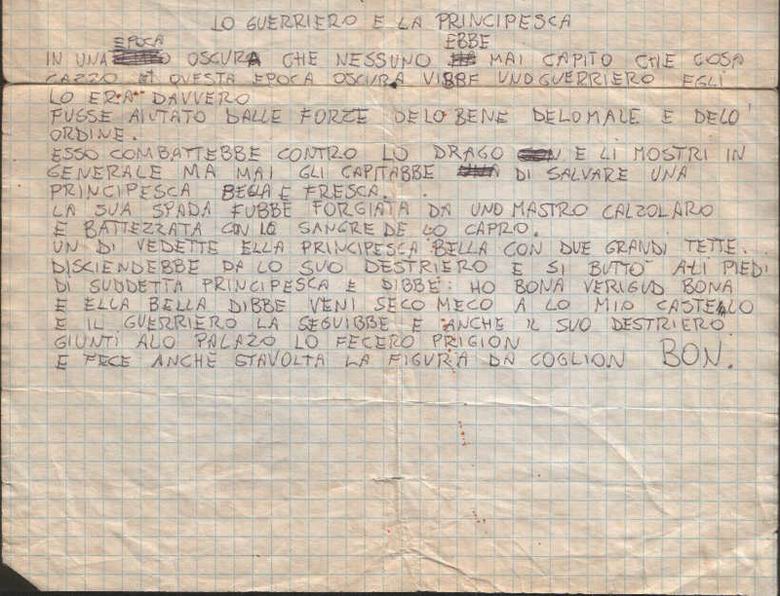 LO GUERRIERO E LA PRINCIPESCA
IN UNA EPOCA OSCURA CHE NESSUNO EBBE MAI CAPITO CHE COSA
CAZZO QUESTA EPOCA OSCURA VIBBE UNO GUERRIERO EGLI
LO ERA DAVVERO
FUSSE AIUTATO DALLE FORZE DELO BENE DELO MALE E DELO
ORDINE.
ESSO COMBATTEBBE CONTRO LO DRAGO E LI MOSTRI IN
GENERALE MA MAI GLI CAPITABBE DI SALVARE UNA
PRINCIPESCA BEGLA E FRESCA.
LA SUA SPADA FUBBE FORGIATA DA UNO MASTRO CALZOLARO
E BATTEZZATA CON LO SANGRE DE LO CAPRO.
UN DI VEDETTE ELLA PRINCIPESCA BELLA CON DUE GRANDI TETTE.
DISCIENDEBBE DA LO SUO DESTRIERO E SI BUTTO' ALI PIEDI
DI SUDDETTA PRINCIPESCA E DIBBE: HO BONA VERIGUD BONA
E ELLA BELLA DIBBE VENI SECO MECO A LO MIO CASTELLO
E IL GUERRIERO LA SEGUIBBE E ANCHE IL SUO DESTRIERO
GIUNTI ALO PALAZO LO FECERO PRIGION
E FECE ANCHE STAVOLTA LA FIGURA DA COGLION BON.